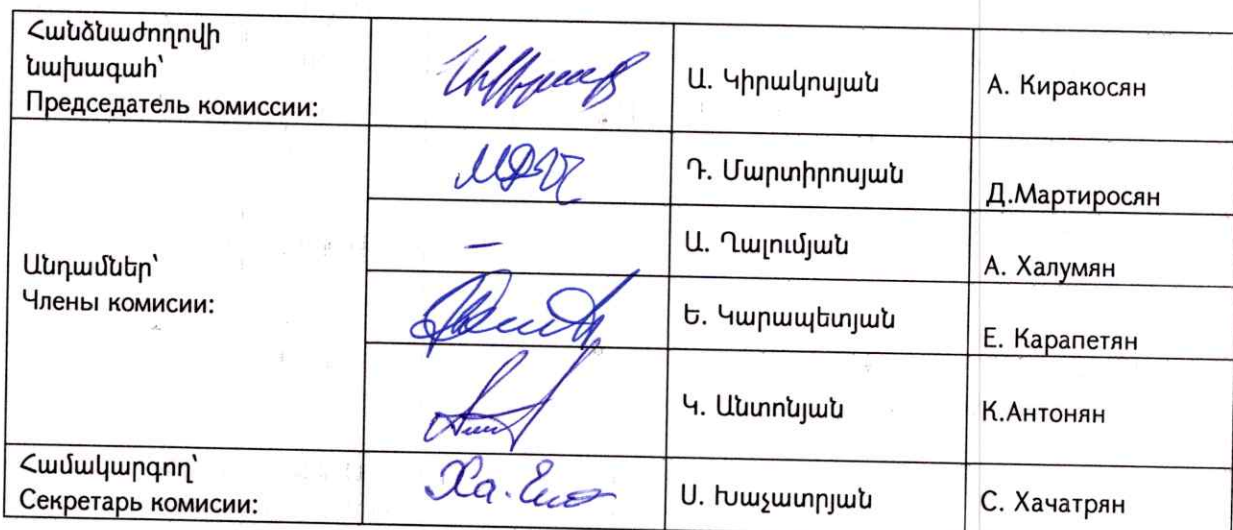 Հանձնաժողովի
նախագահ՝
Председатель комиссии:
Ա. Կիրակոսյան
А. Киракосян
Դ. Մարտիրոսյան
Д.Мартиросян
Ա. Ղալումյան
А. Халумян
Անդամներ՝
Члены комисии:
Ե. Կարապետյան
Е. Карапетян
Կ. Անտոնյան
К.Антонян
Համակարգող՝
Секретарь комисии:
Ս. Խաչատրյան
С. Хачатрян